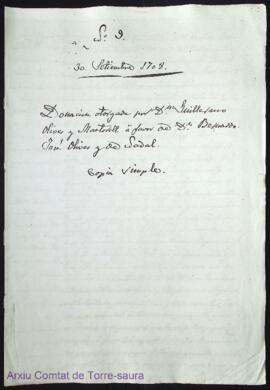 Nº 9.
30 Setiembre 1708.
Donacion otorgada por Dn. Guillermo
Olives y Martorell á favor de Dn. Bernardo
José Olives y de Nadal.
Copia simple.
Arxiu Comtat de Torre-saura